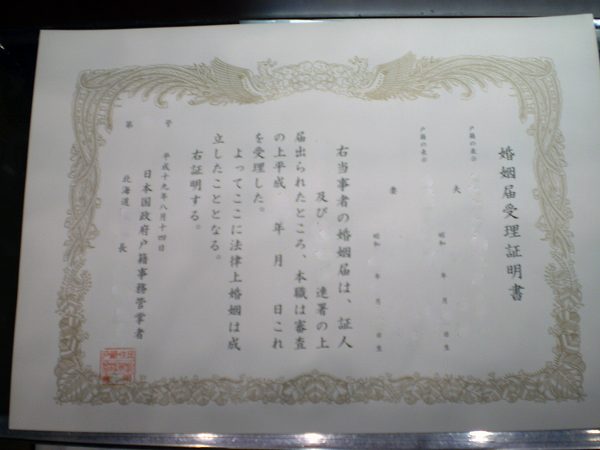 婚姻届受理証明書
戸籍の表示
夫
昭和 年 月 日生
戸籍の表示
妻
昭和 年 月 日生
右当事者の婚姻届は、証人
及び 連署の上
届出られたところ、本職は審査
の上平成 年 月 日これ
を受理した。
よってここに法律上婚姻は成
立したこととなる。
右証明する。
第 号
平成十九年八月十四日
日本国政府戸籍事務管掌者
北海道 長